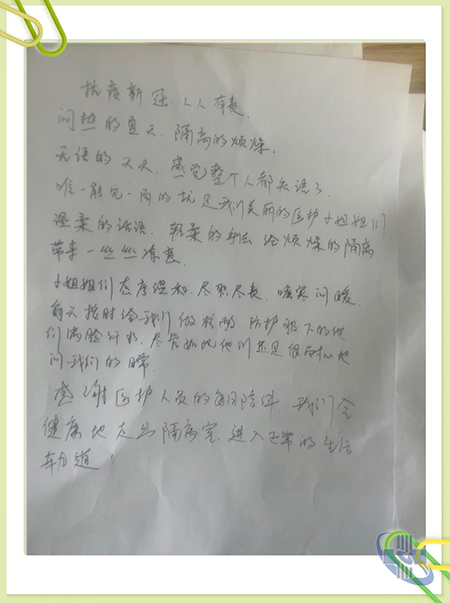 抗疫新冠、人人有责
闷热的夏天、隔离的烦燥、
无语的天天、感觉整个人都失语了
唯一能见一面的就是我们美丽的医护小姐姐们
温柔的话语、轻柔的手法 给烦燥的隔离
带来一丝丝凉意
小姐姐们态度温和、尽职尽责、嘘寒问暖、
每天按时给我们做核酸、防护服下的他
们满脸汗水、尽管如此他们还是很耐心地
问我们的日常、
感谢医护人员的每日陪伴 我们会
健康地走出隔离室、进入正常的生活
轨道！